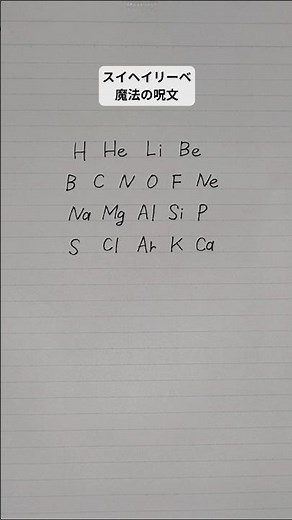 スイヘイリーベ
魔法の呪文
H He Li Be
B C N O F Ne
Na Mg Al Si P
S Cl Ar K Ca